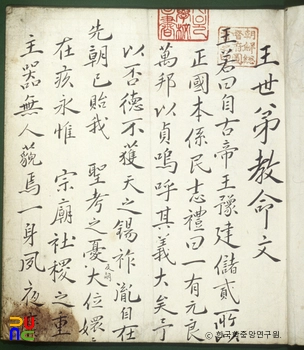 王世弟教命文
王若曰自古帝王豫建儲貳所
正國本係民志禮曰一有元良
萬邦以貞嗚呼其義大矣予
以否德不獲天之錫祚胤自在
先朝已貽我 聖考之憂及嗣大位嬛
在疚永惟 宗廟社稷之重
主器無人藐焉一身夙夜
한국학중앙연구원